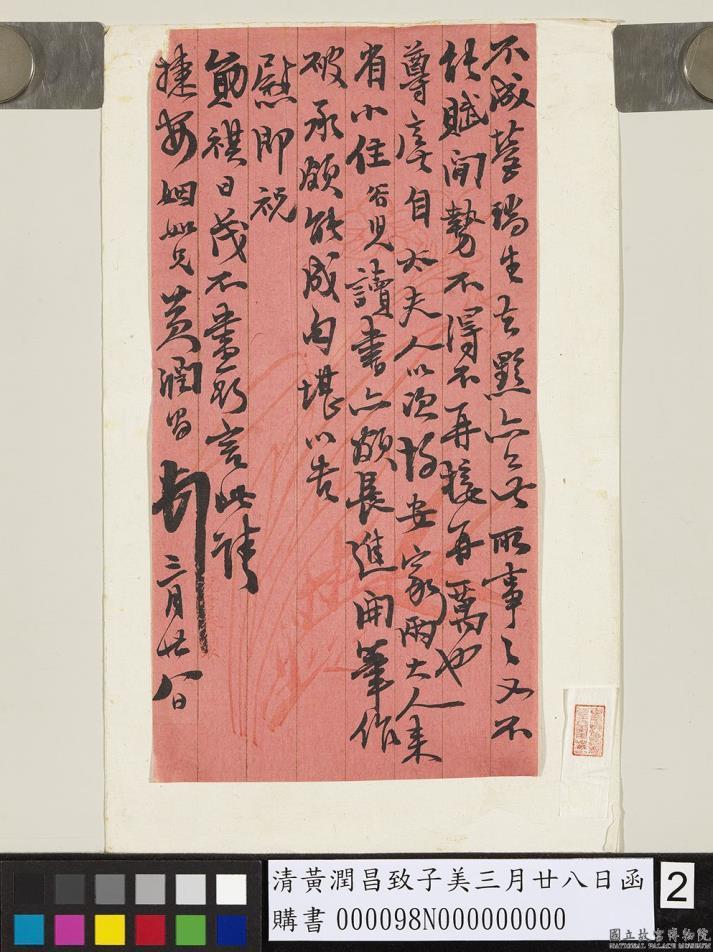 不成營瑞生去黔亦無所事々又不
能賦閒勢不得不再接再厲也
尊處自太夫人以次均安家兩大人來
省小住谷兒讀書亦頗長進開筆作
破承頗能成句堪以告
慰即祝
勛祺日茂不盡欲言此請
捷安姻如兄黃潤昌頓三月廿八日
清黃潤昌致子美三月廿八日函
購書 000098N000000000
2
國立故宮博物院
NATIONAL PALACE MUSEUM